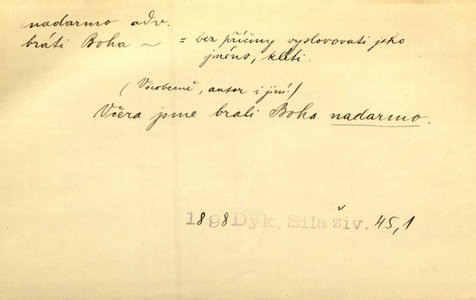 nadarmo adv.
bráti Boha ~ = bez příčiny vyslovovati jeko
jméno, kleti.
(Všeobecně, autor i jiní.)
Včera jsme brali Boha nadarmo.
1898 Dyk, Síla živ. 45,1